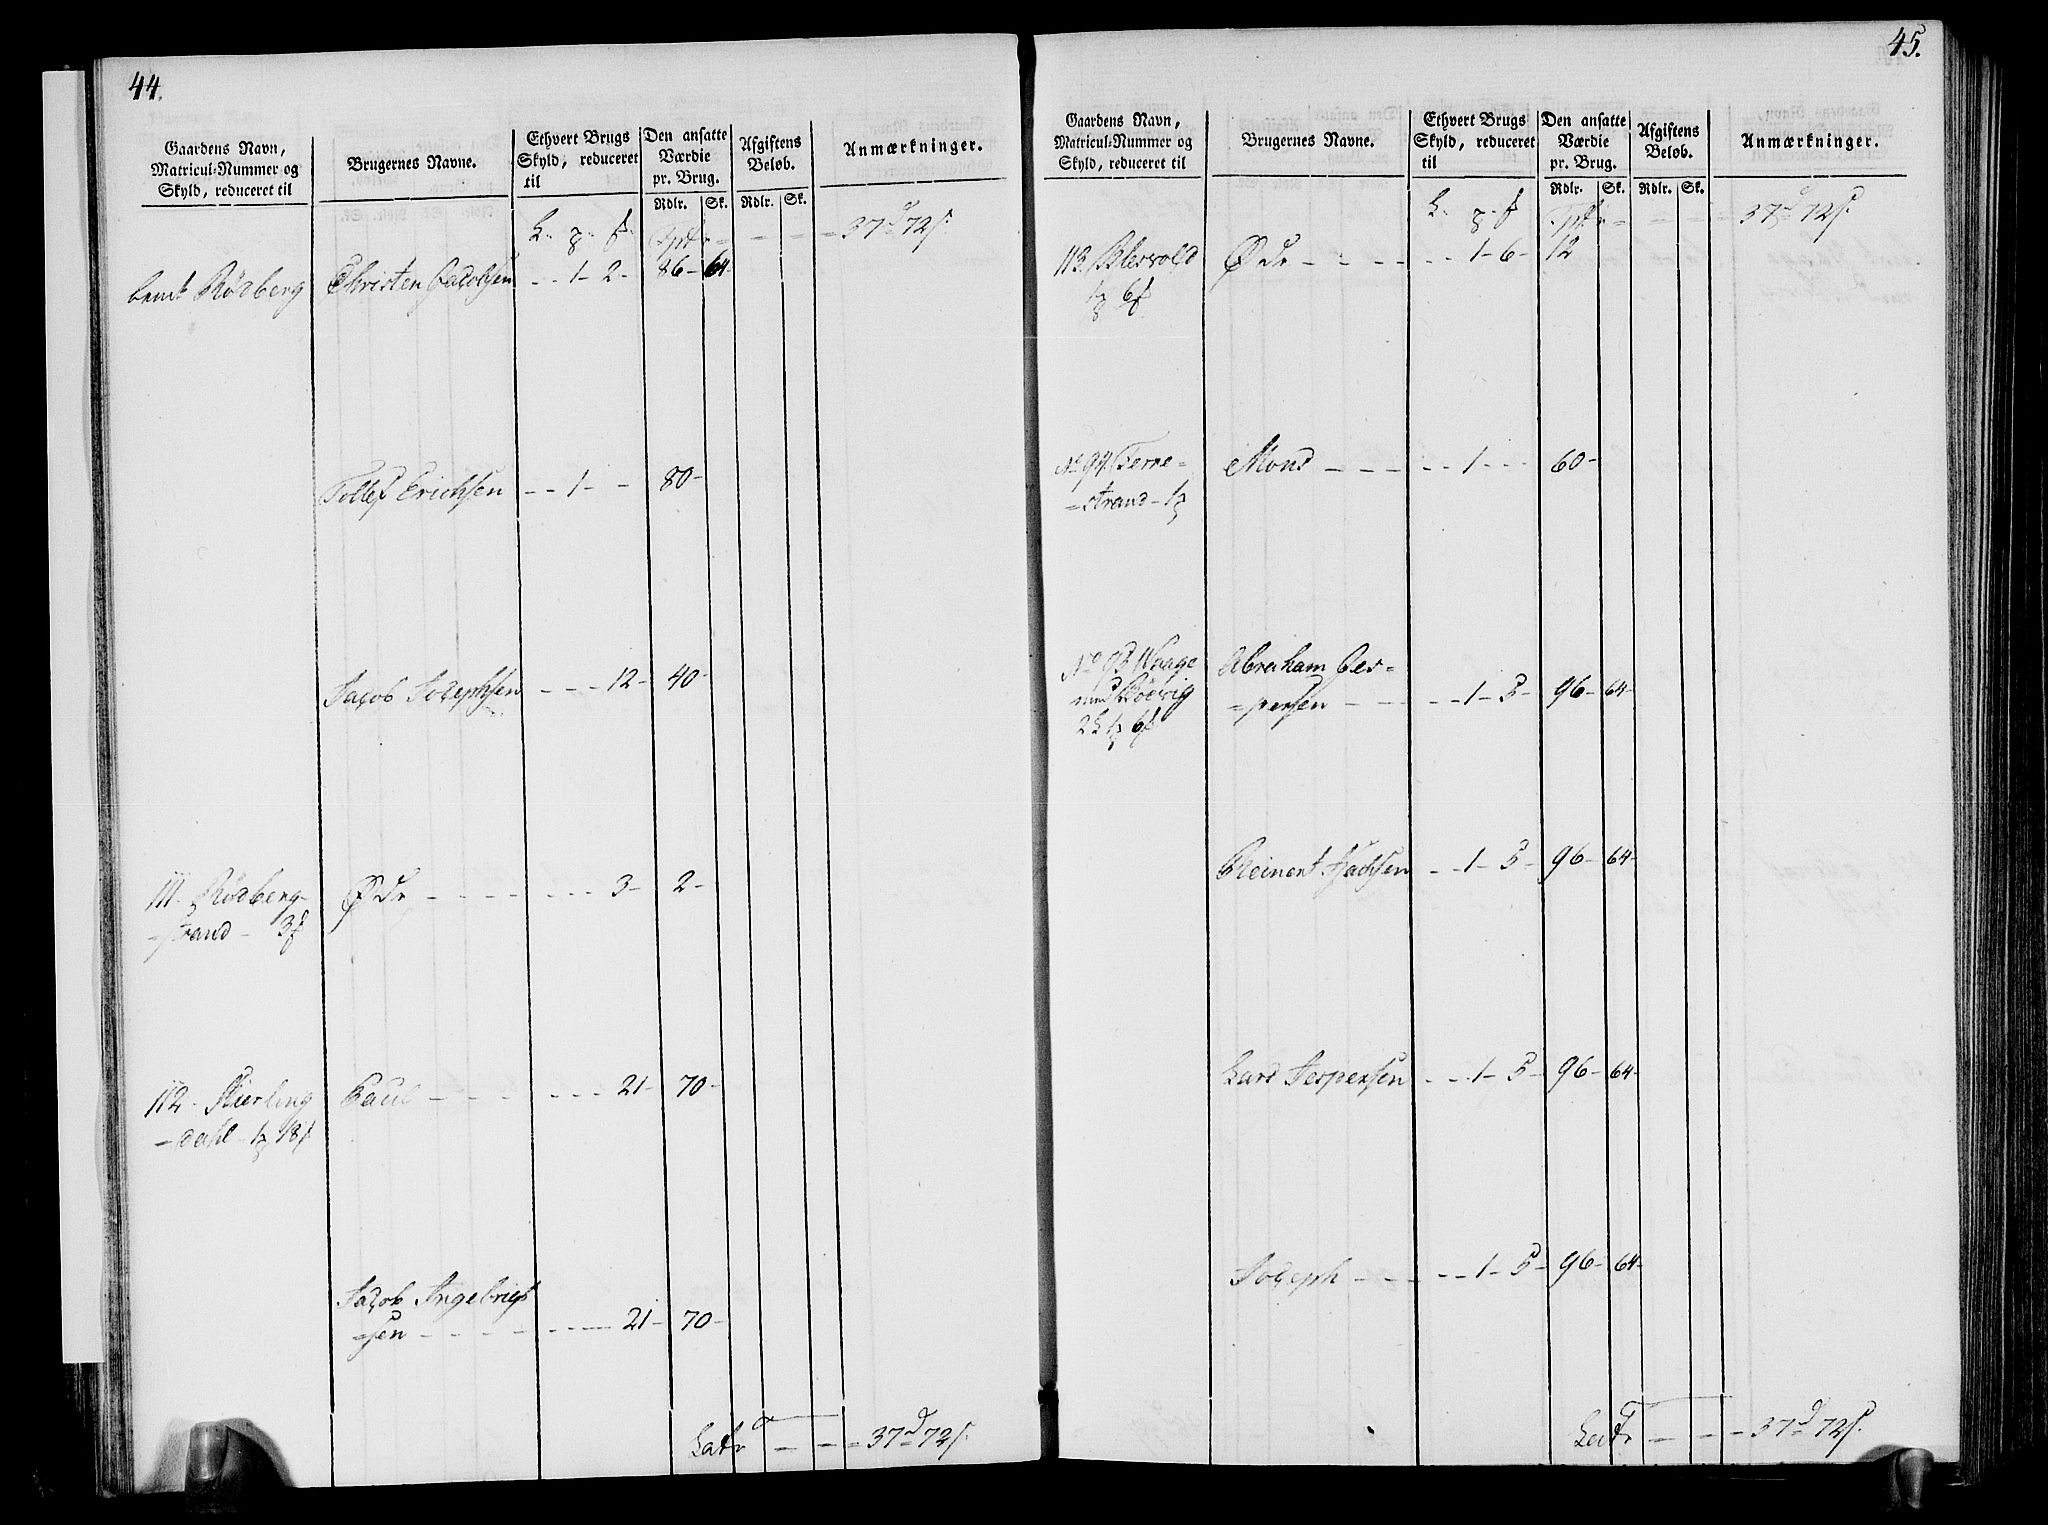 44.
Gaardens Navn, Matricul-Nummer og Skyld, reduceret til
Brugernes Navne.
Ethvert Brugs Skyld, reduceret til
Den ansatte Værdie pr. Brug.
Afgiftens Beløb.
Anmærkninger.
Rdlr. Sk. Rdlr. Sk.
37 d 72 s.
Rödberg Christen Jacobsen - - 1 - 2 - 86 - 64 -
Tollef Erichsen - - 1 - - 80 -
Jacob Josephsen - - - 12 - 40 -
111. Rödberg-
=strand - 3 Øde - - - - 3 - 2 -
112. Kierling
-dahl - 1 18 Paul - - - - 21 - 70 -
Jacob Ingebrigt
=sen - - - - 21 - 70 -
Latr - - - 37 d 72 s.
45.
Gaardens Navn, Matricul-Nummer og Skyld, reduceret til
Brugernes Navne.
Ethvert Brugs Skyld, reduceret til
Den ansatte Værdie pr. Brug.
Afgiftens Beløb.
Anmærkninger.
Rdlr. Sk. Rdlr. Sk.
37 d 72 s.
113. Øde - - - - 1 - 6 - 12
No 94 Terne=
=strand - 1 Mons - - - - 1 - - 60 -
No 93 Waage Abraham Jes=
med =persen - - - 1 - 5 - 96 - 64 -
Reinert Isachsen - - 1 - 5 - 96 - 64 -
Lars Jespersen - - 1 - 5 - 96 - 64 -
Joseph - - - - 1 - 5 - 96 - 64 -
Latr - - - 37 d 72 s.